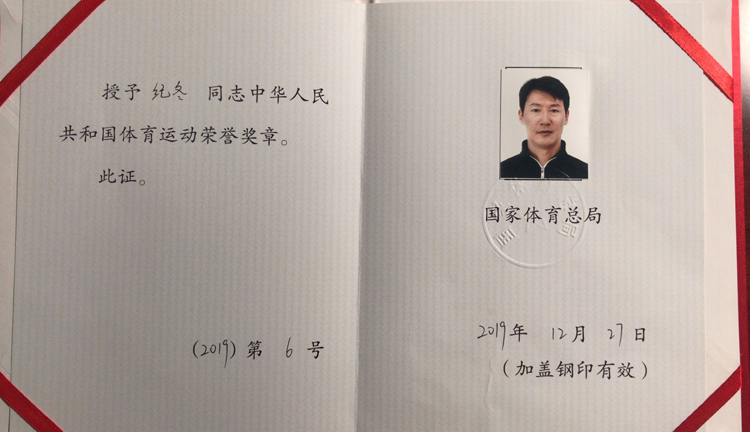 授予 纪冬 同志中华人民
共和国体育运动荣誉奖章。
此证。
(2019) 第 6 号
国家体育总局
2019年 12月 27日
(加盖钢印有效)